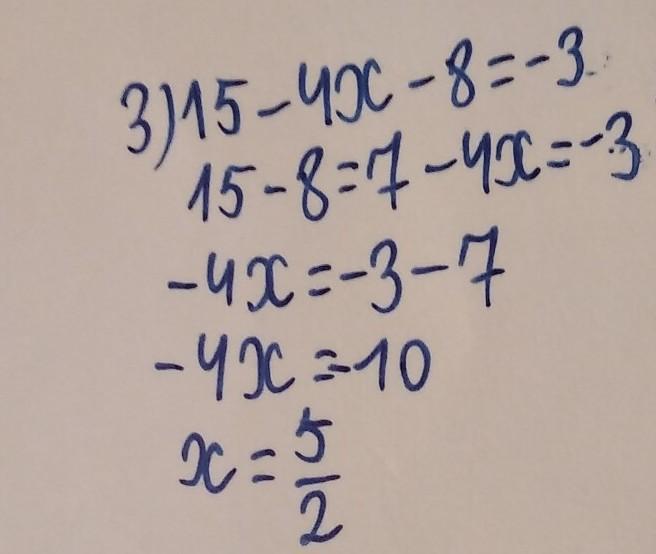 3) 15 - 4x - 8 = -3
15 - 8 = 7 - 4x = -3
-4x = -3 - 7
-4x = -10
x = 5/2